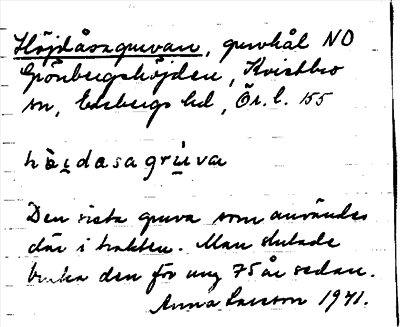 Höjdåsagruvan, gruvhål NO
Grönbergshöjden, Kvistbro
sn, Edsbergs hd, Ör. l. 155
höi̱dasagrùva
Den sista gruva som användes
där i trakten. Man slutade
bruka den för ung 75 år sedan.
Anna Larsson 1941.